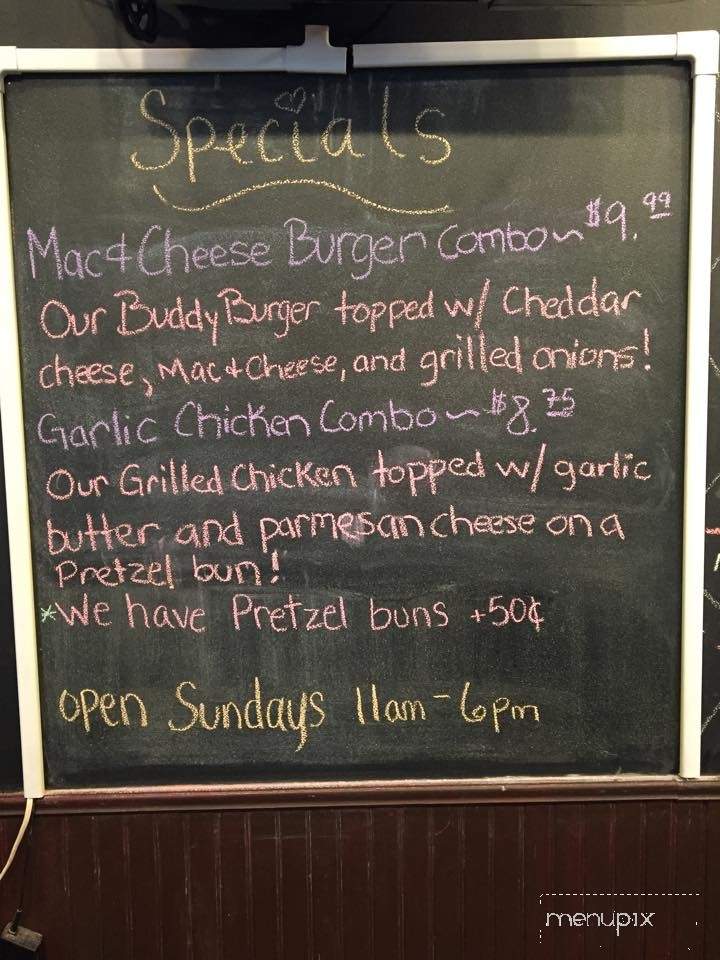 Specials
Mac & Cheese Burger Combo ~ $9.99
Our Buddy Burger topped w/ Cheddar
cheese, Mac & Cheese, and grilled onions!
Garlic Chicken Combo ~ $8.75
Our Grilled Chicken topped w/ garlic
butter and parmesan cheese on a
Pretzel bun!
*We have Pretzel buns +50¢
open Sundays 11am - 6pm
menupix